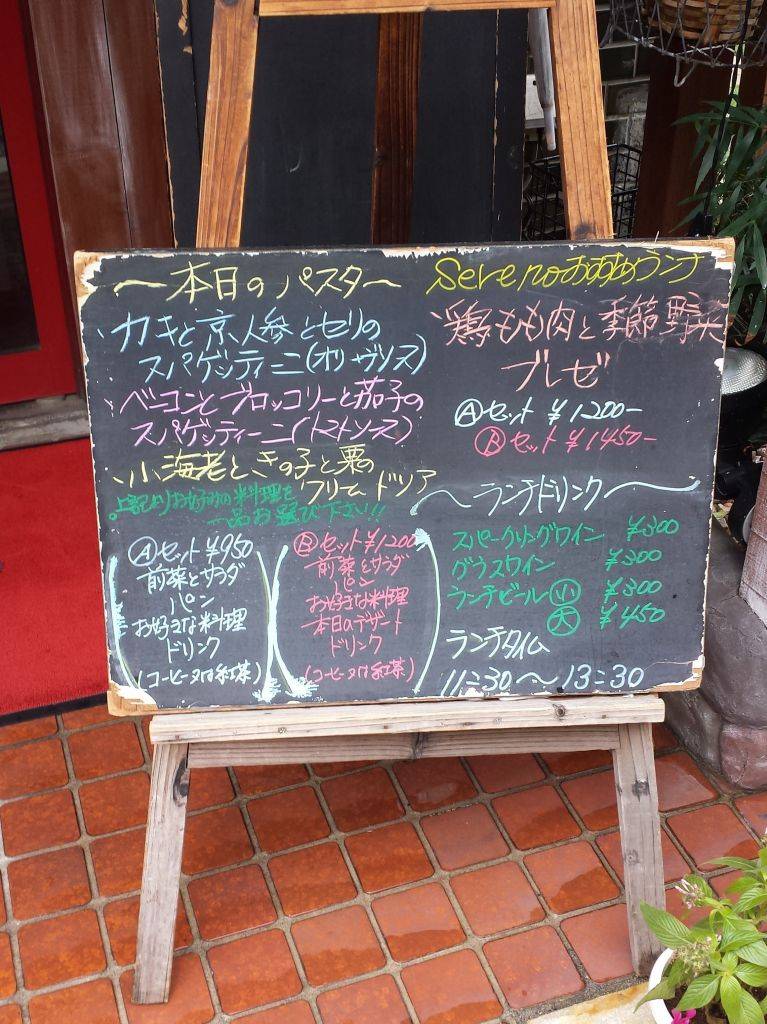 ～本日のパスタ～
カキと京人参とセリの
スパゲッティーニ(オリーヴソース)
ベーコンとブロッコリーと茄子の
スパゲッティーニ(トマトソース)
小海老ときの子と栗の
クリームドリア
上記よりお好みの料理を
一品お選び下さい!!
Ⓐセット ¥950
前菜とサラダ
パン
お好きな料理
ドリンク
(コーヒー又は紅茶)
Ⓑセット ¥1200
前菜とサラダ
パン
お好きな料理
本日のデザート
ドリンク
(コーヒー又は紅茶)
Serenoおすすめランチ
鶏もも肉と季節野菜
ブレゼ
Ⓐセット ¥1200-
Ⓑセット ¥1450-
～ランチドリンク～
スパークリングワイン ¥300
グラスワイン ¥300
ランチビール 小 ¥300
大 ¥450
ランチタイム
11:30～13:30